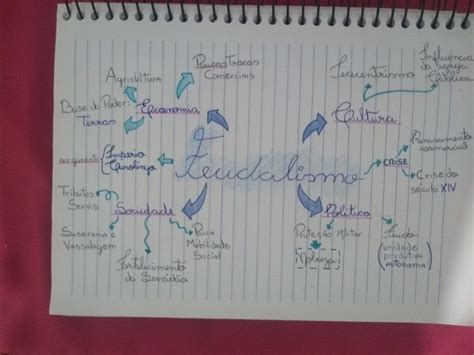 Agricultura
Poucas Trocas
Comerciais
Base do Poder:
Terras
Economia
surgimento
Império
Carolíngio
Feudalismo
Tributos
Servis
Sociedade
Suserania e
Vassalagem
Fortalecimento
da Servidão
Pouca
Mobilidade
Social
Teocentrismo
Influência
da Igreja
Católica
Cultura
CRISE
Renascimento
comercial
Crise do
século XIV
Política
Proteção Militar
Nobreza
Feudo
(unidade
produtiva
AUTÔNOMA)